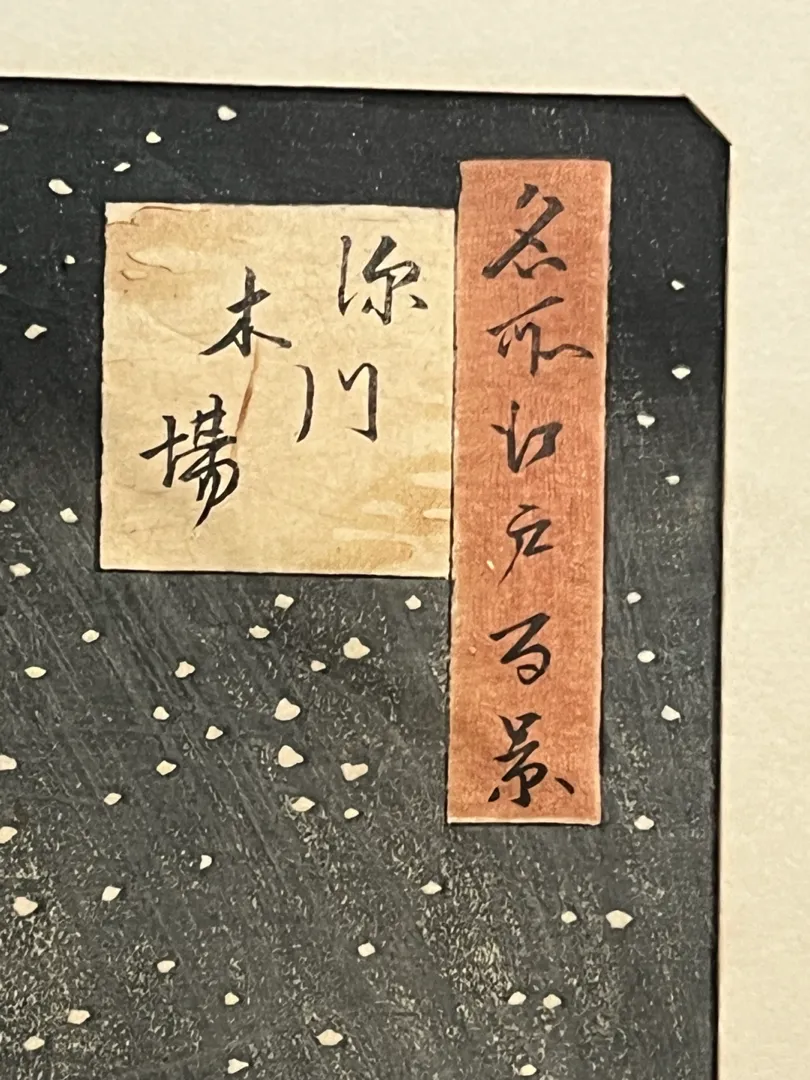 名所江戸百景
深川
木場